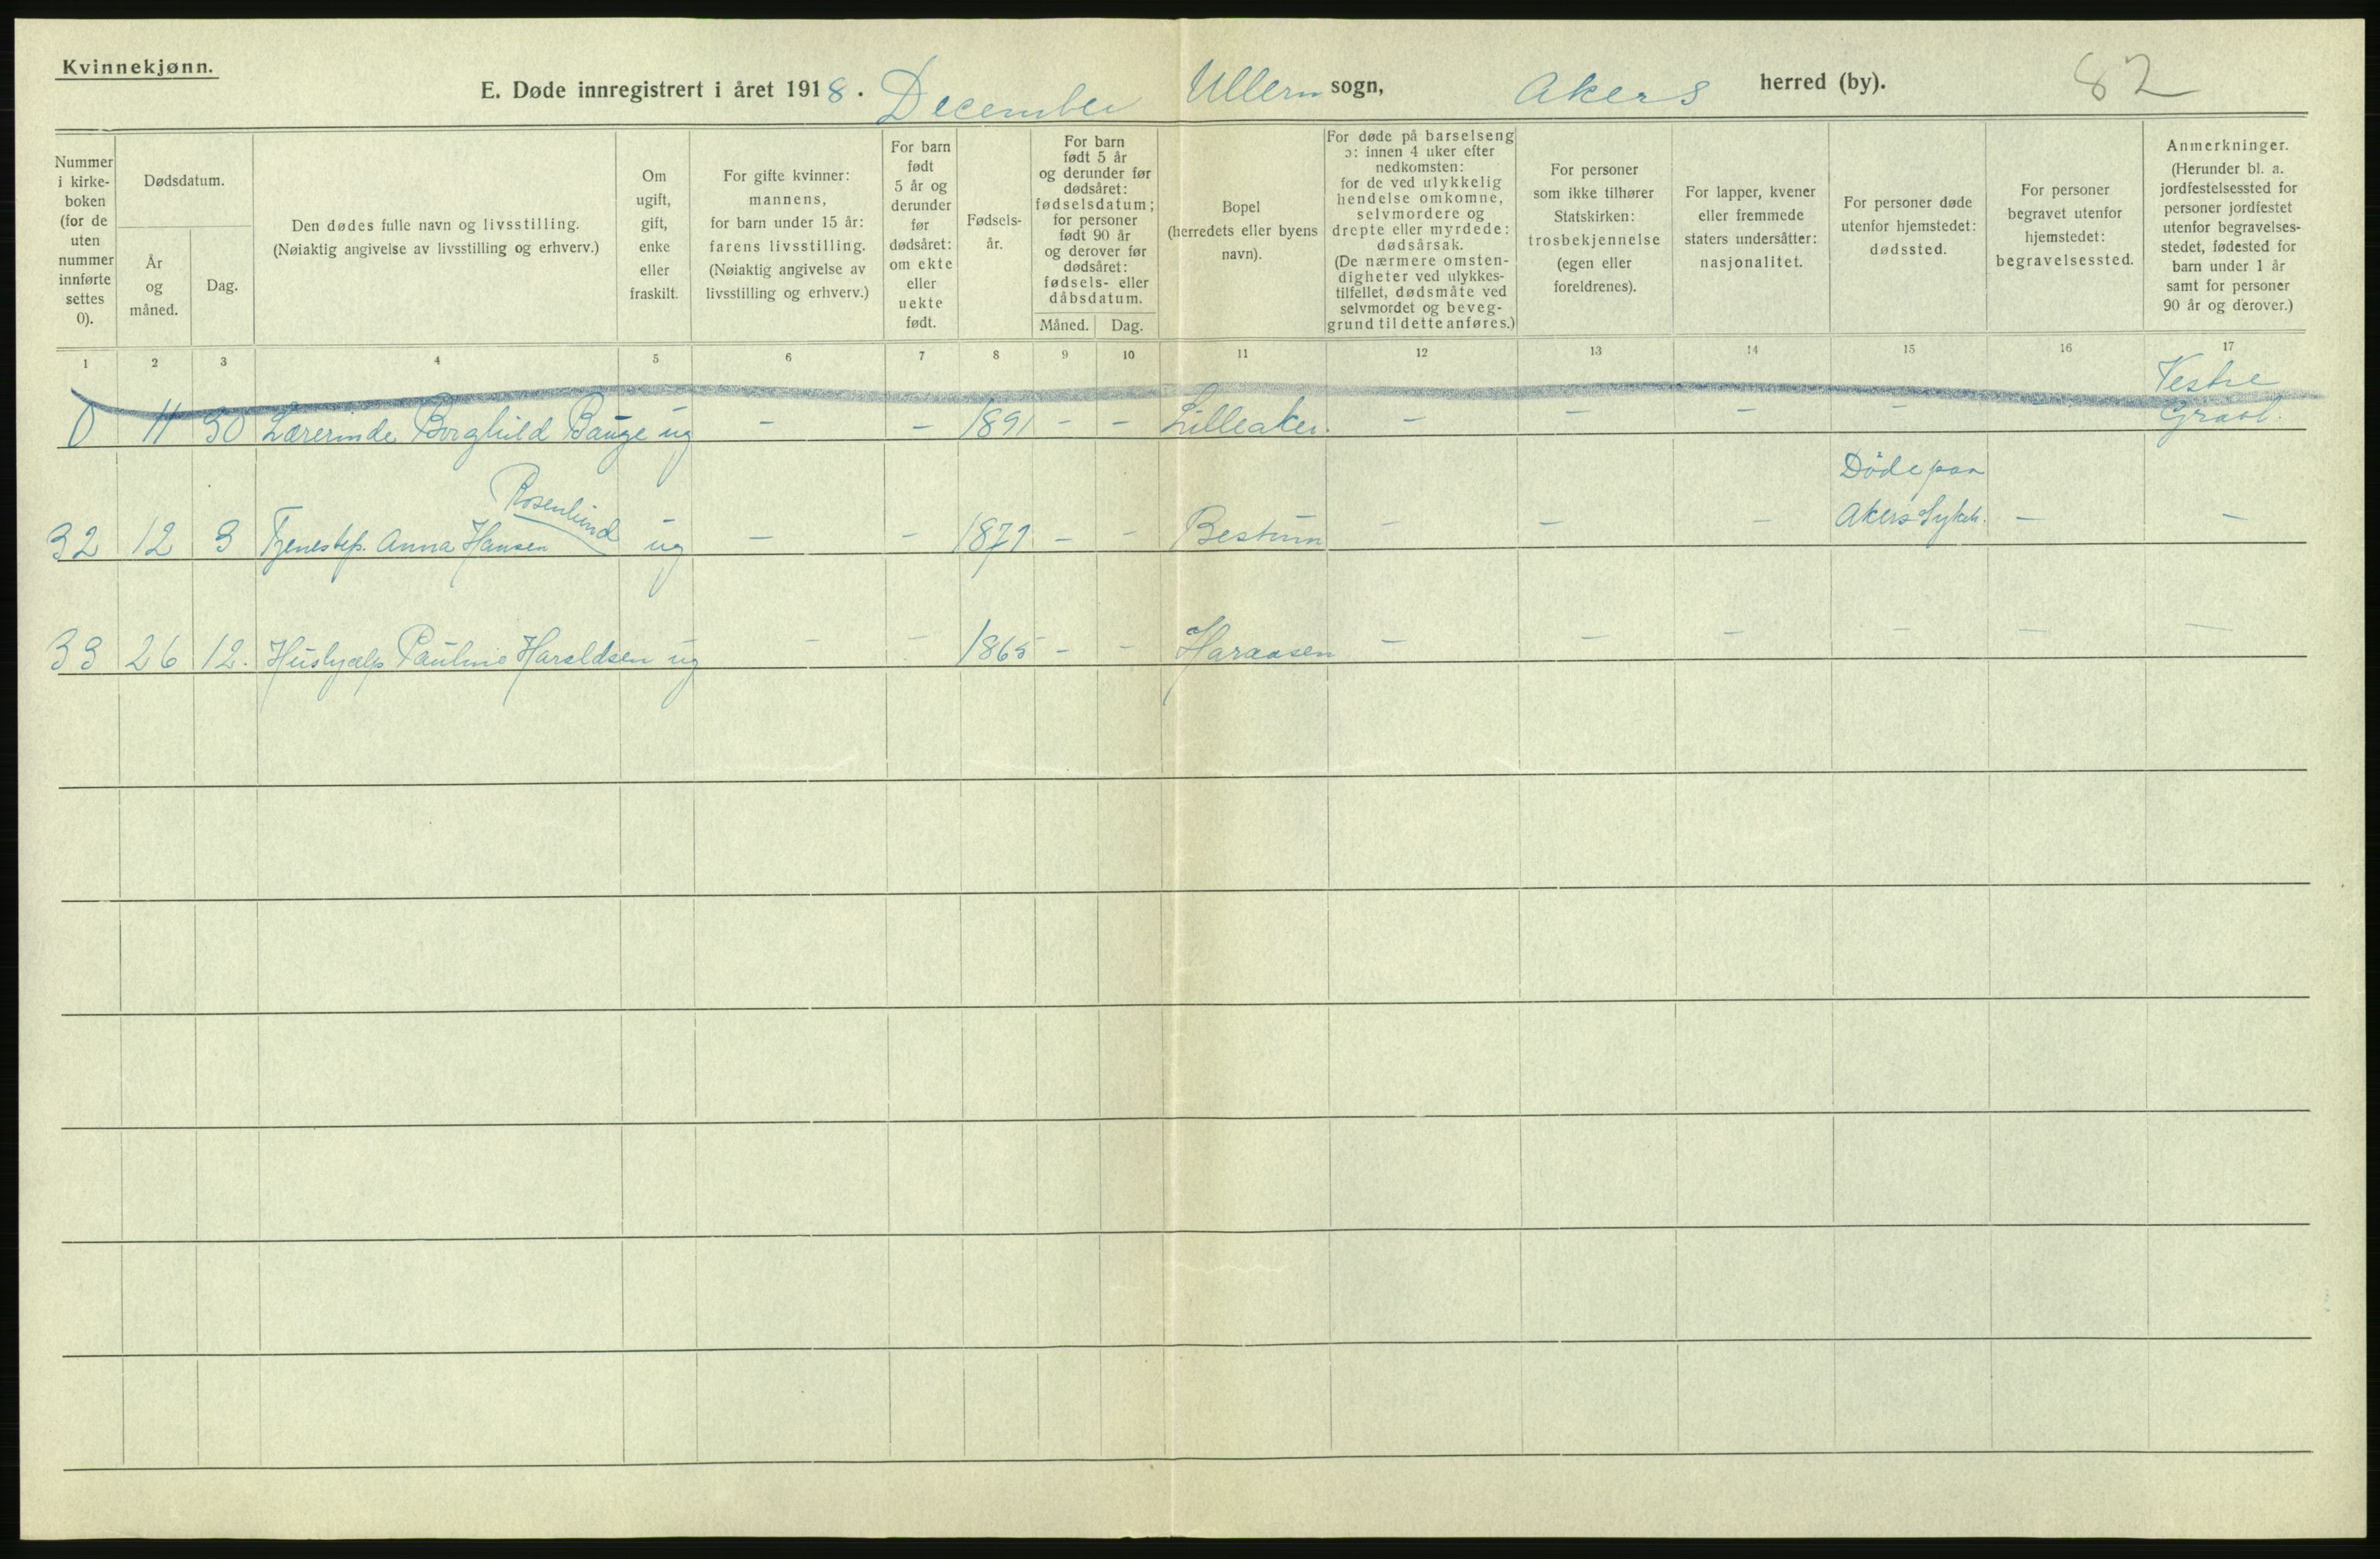 Kvinnekjønn.
E. Døde innregistrert i året 1918. December Ullern sogn, Akers herred (by). 82
Nummer i kirke-boken (for de uten nummer innførte settes 0).
Dødsdatum.
År og måned.
Dag.
Den dødes fulle navn og livsstilling.
(Nøiaktig angivelse av livsstilling og erhverv.)
Om ugift, gift, enke eller fraskilt.
For gifte kvinner: mannens, for barn under 15 år: farens livsstilling. (Nøiaktig angivelse av livsstilling og erhverv.)
For barn født 5 år og derunder før dødsåret: om ekte eller uekte født.
Fødsels-år.
For barn født 5 år og derunder før dødsåret: fødselsdatum; for personer født 90 år og derover før dødsåret: fødsels- eller dåbsdatum.
Måned. Dag.
Bopel (herredets eller byens navn).
For døde på barselseng ɔ: innen 4 uker efter nedkomsten: for de ved ulykkelig hendelse omkomne, selvmordere og drepte eller myrdede: dødsårsak. (De nærmere omsten-digheter ved ulykkes-tilfellet, dødsmåte ved selvmordet og beveg-grund til dette anføres.)
For personer som ikke tilhører Statskirken: trosbekjennelse (egen eller foreldrenes).
For lapper, kvener eller fremmede staters undersåtter: nasjonalitet.
For personer døde utenfor hjemstedet: dødssted.
For personer begravet utenfor hjemstedet: begravelsessted.
Anmerkninger. (Herunder bl. a. jordfestelsessted for personer jordfestet utenfor begravelses-stedet, fødested for barn under 1 år samt for personer 90 år og derover.)
1 2 3 4 5 6 7 8 9 10 11 12 13 14 15 16 17
Vestre
0 11 30 Lærerinde Borghild Bauge ug - - 1891 - - Lilleaker. - - - - - Gravl.
Døde paa
Rosenlund
32 12 3 Tjenestep. Anna Hansen ug - - 1871 - - Bestum - - - Akers Sykeh. - -
33 26 12. Hushjælp Pauline Haraldsen ug - - 1865 - - Haraasen - - - - - -